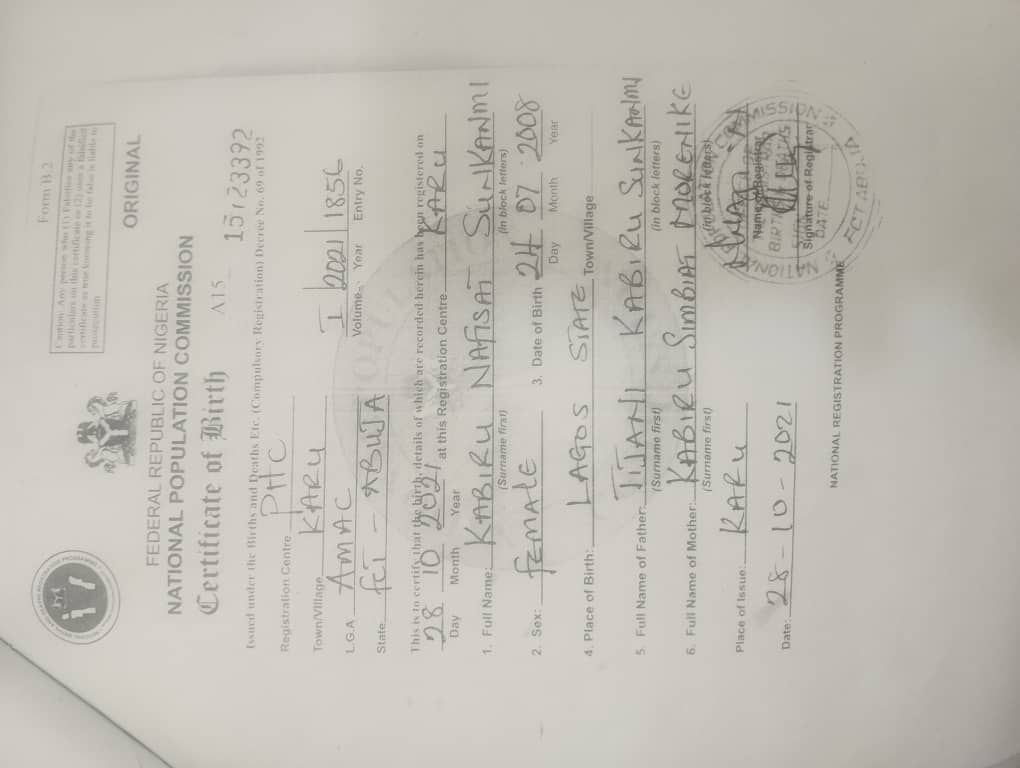 Form B 2
Caution: Any person who (1) Falsifies any of the
particulars on this certificate or (2) uses a falsified
certificate as true knowing it to be false is liable to
prosecution
ORIGINAL
FEDERAL REPUBLIC OF NIGERIA
NATIONAL POPULATION COMMISSION
Certificate of Birth
A15 15123392
Issued under the Births and Deaths Etc. (Compulsory Registration) Decree No. 69 of 1992
Registration Centre PHC
Town/Village KARU
L.G.A AMAC I 2021 1856
Volume Year Entry No.
State FCT - ABUJA
This is to certify that the birth, details of which are recorded herein has been registered on
28 10 2021 at this Registration Centre KARU
Day Month Year
1. Full Name: KABIRU NAFISAT SUNKANMI
(Surname first) (in block letters)
2. Sex: FEMALE 3. Date of Birth 24 07 2008
Day Month Year
4. Place of Birth: LAGOS STATE Town/Village
5. Full Name of Father: TIJANI KABIRU SUNKANMI
(Surname first) (in block letters)
6. Full Name of Mother: KABIRU SIMBIAT MORENIKE
(Surname first) (in block letters)
Place of Issue: KARU
Name of Registrar
Date: 28-10-2021
Signature of Registrar
NATIONAL REGISTRATION PROGRAMME
NATIONAL COMMISSION
DATE
FCT ABUJA